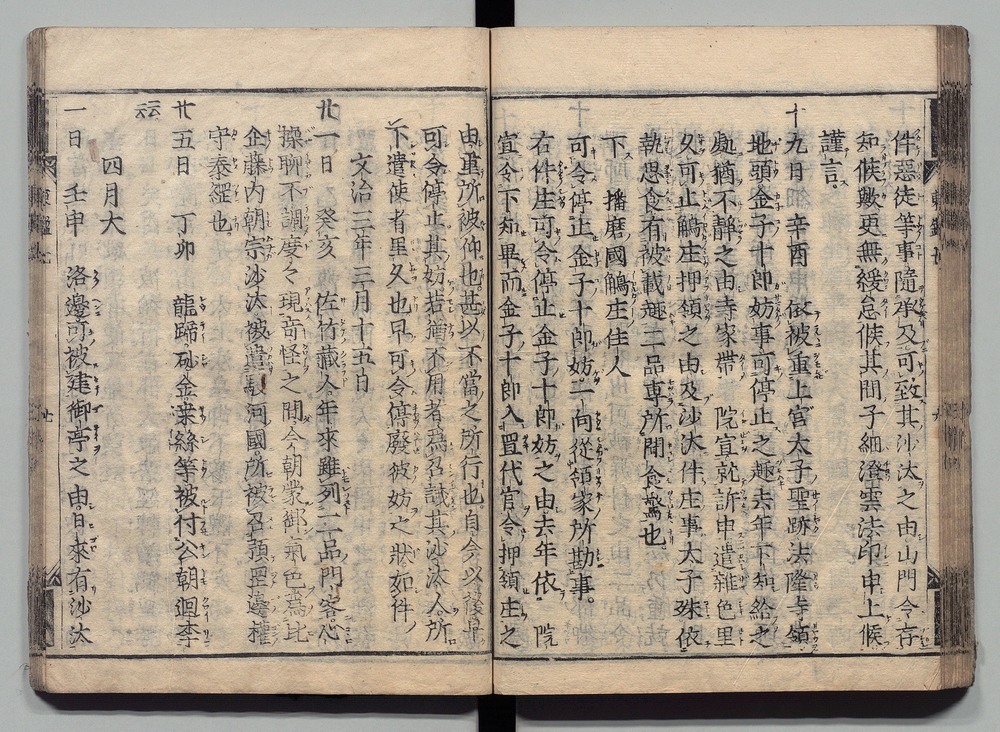 件惡徒等事隨承及可致其沙汰之由山門令言
知候歟更無緩怠候其間子細澄雲法印申上候
謹言
十九日辛酉 依被重上宮太子聖跡法隆寺領
地頭金子十郎妨事可停止之趣去年下知給之
處猶不靜之由寺家帶 院宣就訴申遣雜色里
久可止鵤庄押領之由及沙汰件庄事太子殊依
執思食有被載趣二品専所聞食驚也
下 播磨國鵤庄住人
可令停止金子十郎妨一向從領家所勘事
右件庄可令停止金子十郎妨之由去年依 院
宣令下知畢而金子十郎入置代官令押領庄之
由重所被仰也甚以不當之所行也自今以後早
可令停止其妨若猶不用者爲召誡其沙汰人所
下遣使者里久也早可令停廢彼妨之狀如件
文治三年三月十五日
廿一日 癸亥 佐竹藏人年來雖列二品門客心
操聊不調度々現奇怪之間今朝蒙御氣色爲比
企藤内朝宗沙汰被遣駿河國所被召預罡邊權
守泰綱也
廿五日 丁卯 龍蹄砂金葉絲等被付公朝迴李
云云
四月大
一日 壬申 洛邊可被建御亭之由日來有沙汰